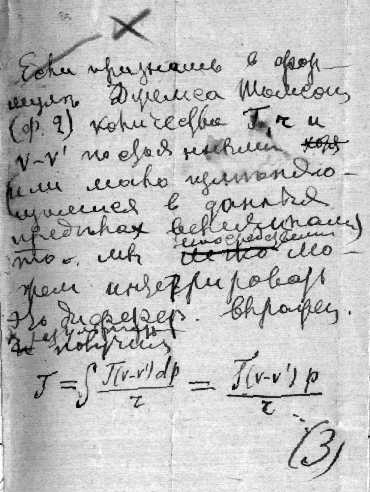 Если признать в фор-
муле Джемса Томсона
(ф. 2) количества T, r и
v-v' постоянными
или мало изменяю-
щимися в данных
пределах величинами,
то мы непосредственно мо-
жем интегрировать
это дифферен. выражен.
и получим
T = ∫ T(v-v')dp / r = T(v-v') p / r
(3)